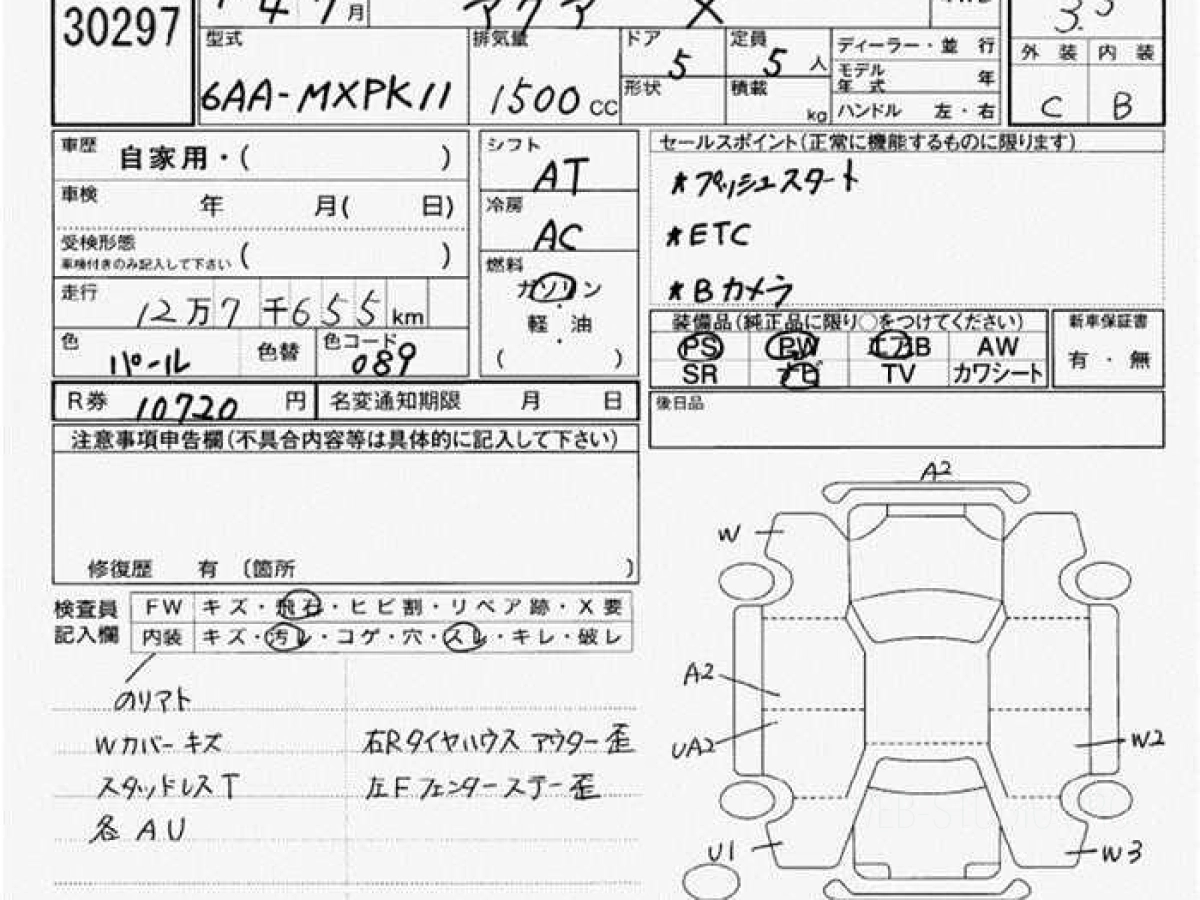 30297
月
アクア X
3.5
型式 6AA-MXPK11
排気量 1500 CC
ドア 5
定員 5 人
形状
積載 kg
ディーラー・並 行
モデル年式 年
ハンドル 左・右
外 装 内 装
C B
車歴 自家用・( )
車検 年 月( 日)
受検形態
車検付きのみ記入して下さい ( )
走行 12万7千655 km
色 パール
色替
色コード 089
シフト
AT
冷房
AC
燃料
ガソリン
・
軽 油
・
( )
セールスポイント(正常に機能するものに限ります)
*プッシュスタート
*ETC
*Bカメラ
装備品(純正品に限り○をつけてください)
PS PW エアB AW
SR ナビ TV カワシート
新車保証書
有 ・ 無
R券 10720 円
名変通知期限 月 日
後日品
注意事項申告欄(不具合内容等は具体的に記入して下さい)
修復歴 有 〔箇所 〕
検査員記入欄
FW キズ・飛石・ヒビ割・リペア跡・X要
内装 キズ・汚レ・コゲ・穴・スレ・キレ・破レ
のリアト
Wカバーキズ
スタッドレスT
各AU
右Rタイヤハウスアウター歪
左Fフェンダーステー歪
A2
W
A2
UA2
W2
U1
W3